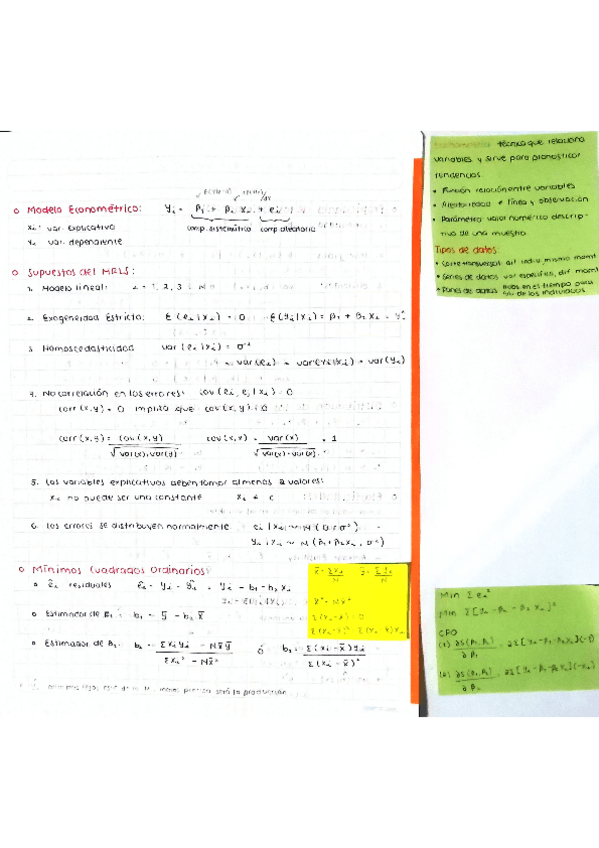 o Modelo Econométrico: yi = β1 + β2 xi + ei
comp. sistemático comp aleatoria
xi: var. explicativa
yi var. dependiente
o Supuestos del MRLS:
1. Modelo lineal: i = 1, 2, 3
2. Exogeneidad Estricta: E(ei|xi) = 0 E(yi|xi) = β1 + β2 xi
3. Homoscedasticidad var(ei|xi) = σ²
= var(ei) = var(yi|xi) = var(yi)
4. No correlación en los errores: cov(ei, ej|xi) = 0
corr(x,y) = 0 implica que cov(x,y) = 0
corr(x,y) = cov(x,y) / √var(x)·var(y) cov(x,x) = var(x) / √var(x)·var(x) = 1
5. Las variables explicativas deben tomar al menos 2 valores:
xi no puede ser una constante xi ≠ c
6. Los errores se distribuyen normalmente ei|xi ~ N(0, σ²)
yi|xi ~ N(β1+β2xi, σ²)
o Mínimos Cuadrados Ordinarios:
êi residuales êi = yi - ŷi = yi - b1 - b2 xi
o Estimador de β1: b1 = ȳ - b2 x̄
o Estimador de β2: b2 = Σxiyi - Nx̄ȳ / Σxi² - Nx̄² ó b2 = Σ(xi - x̄)yi / Σ(xi - x̄)²
será la producción
x̄ = Σxi / N ȳ = Σyi / N
Σ(xi - x̄) = 0
técnica que relaciona
variables y sirve para pronosticar
tendencias
• Función relación entre variables
• Aleatoriedad ≠ línea y observación
• Parámetro valor numérico descrip-
tivo de una muestra
Tipos de datos:
• Corte transversal: dif indiv, mismo mom
• Series de datos var específica, dif. mom
• Panel de datos
de los individuos
Min Σei²
Min Σ[yi - β1 - β2xi]²
CPO
(1) ∂S(β1,β2) / ∂β1 = 2Σ[yi - β1 - β2xi](-1)
(2) ∂S(β1,β2) / ∂β2 = 2Σ[yi - β1 - β2xi](-xi)